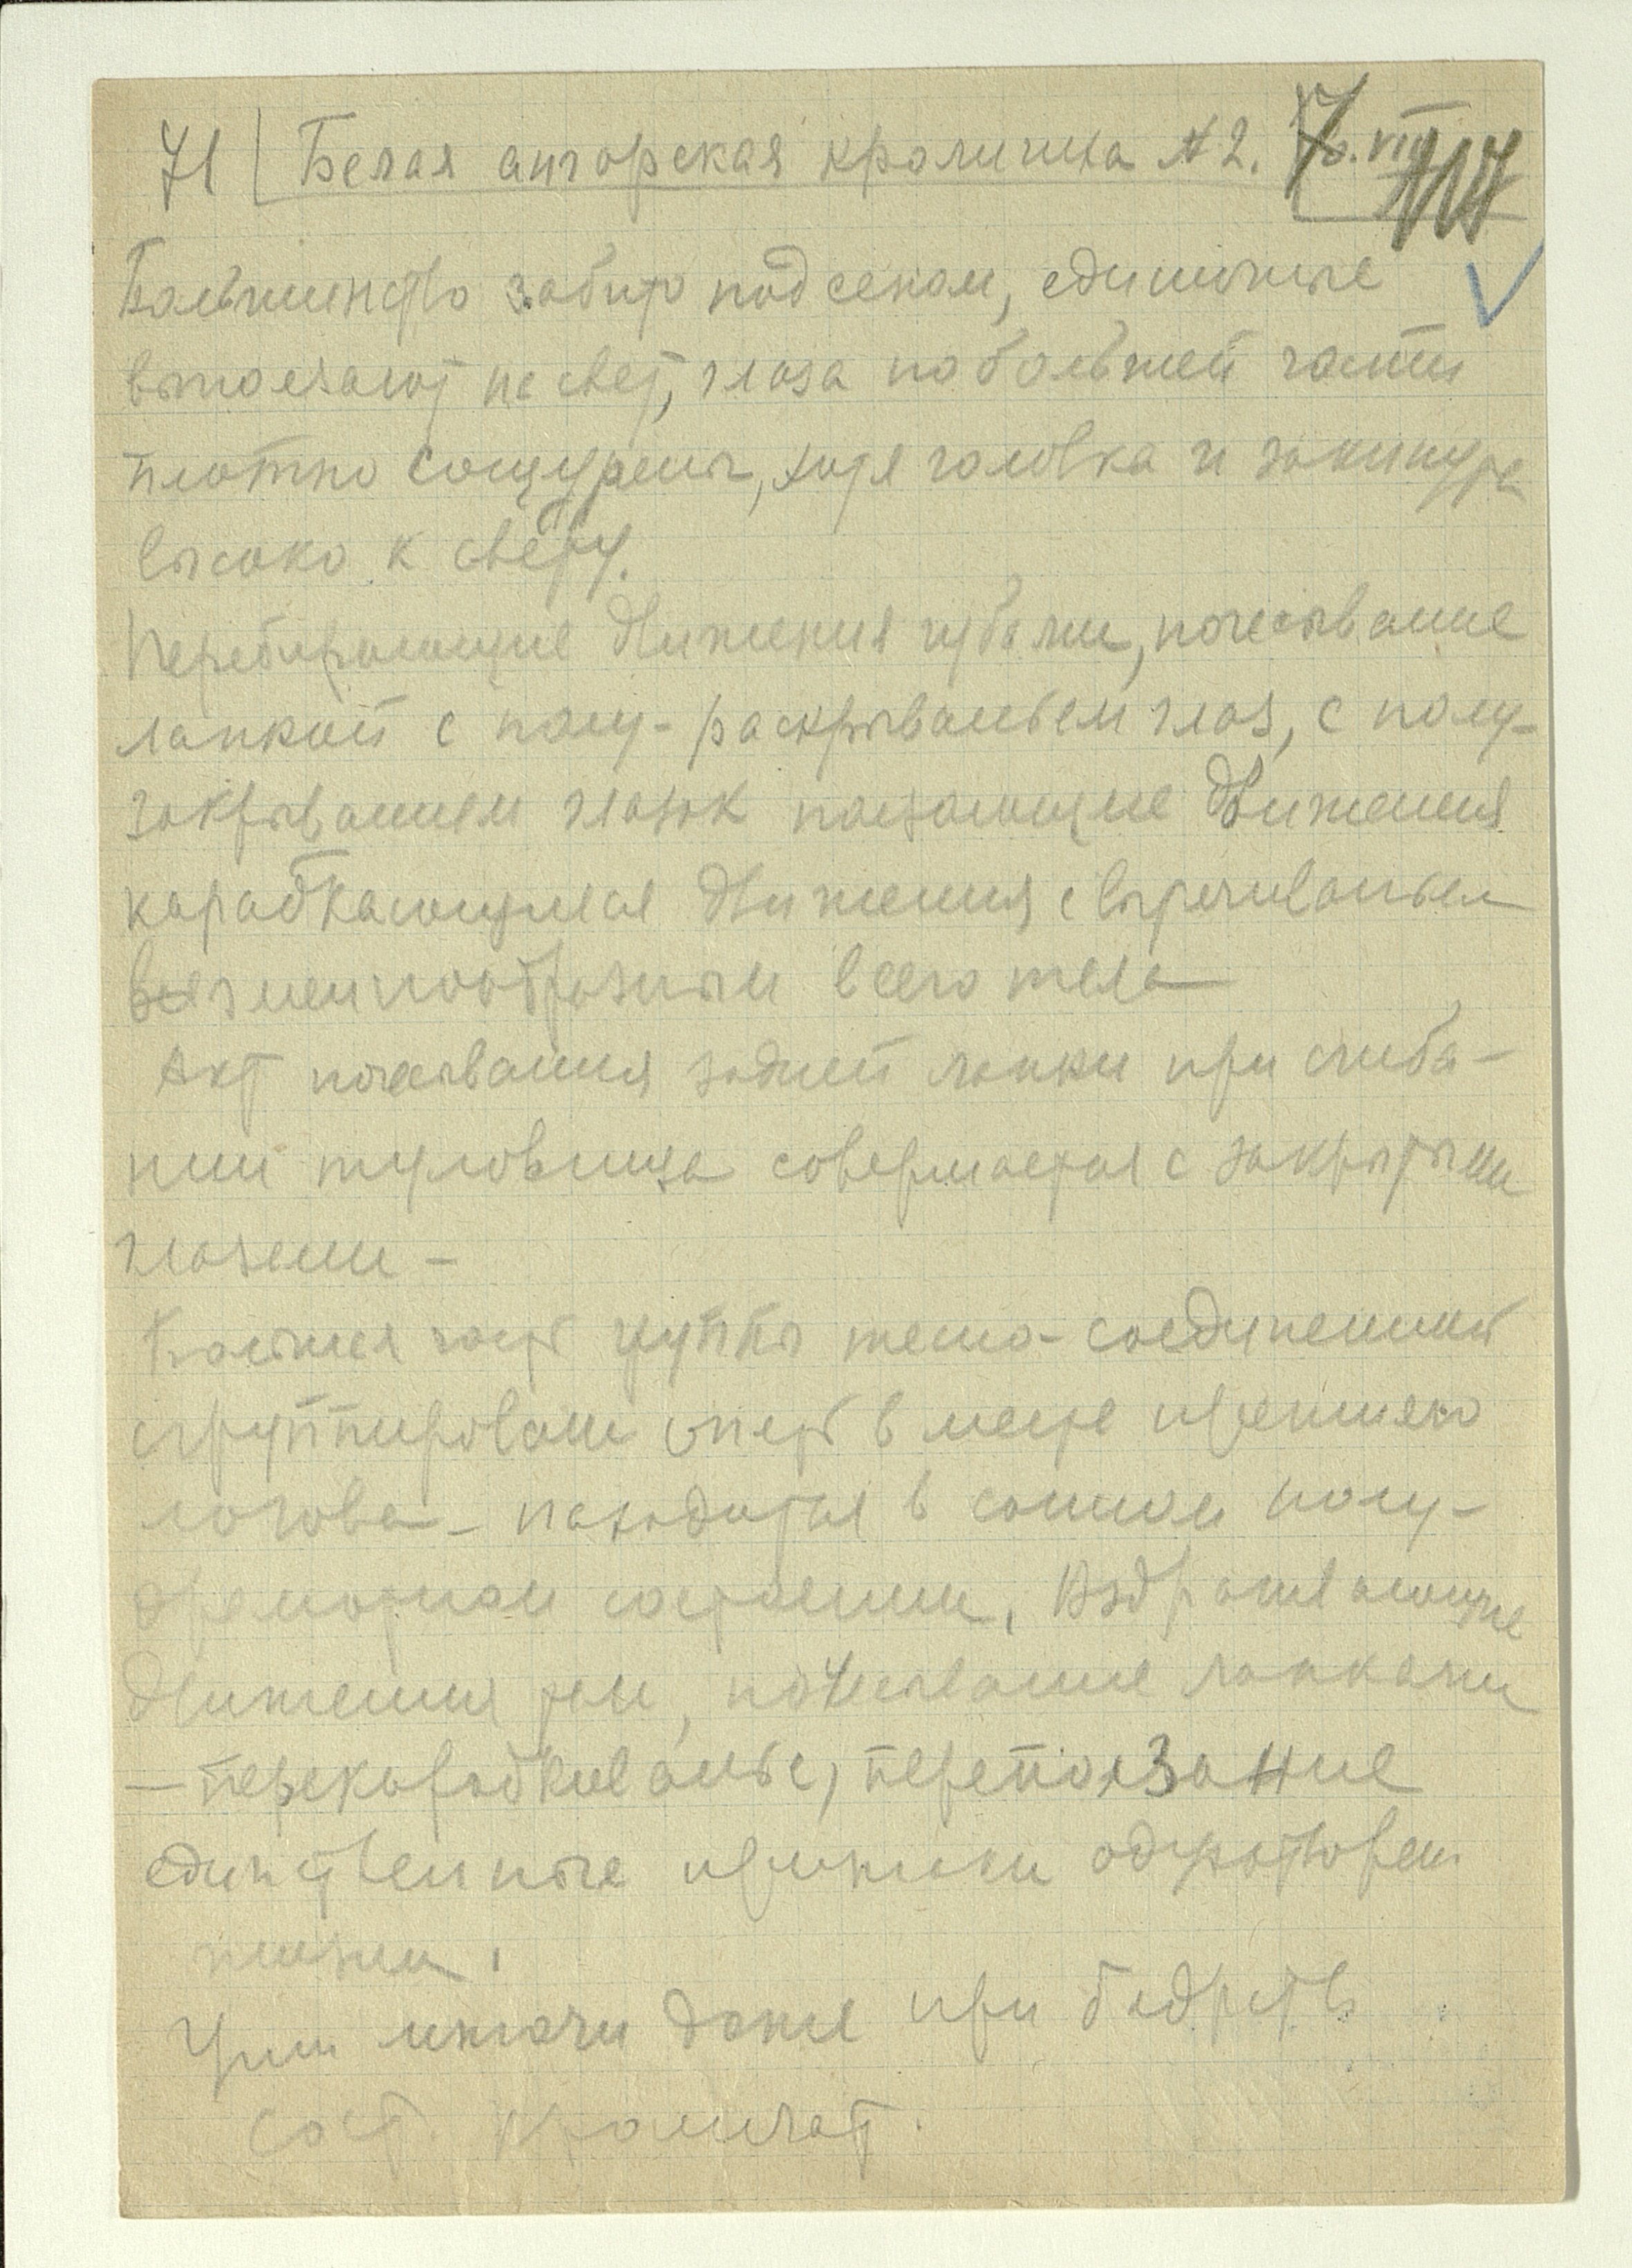 71 | Белая ангорская крольчиха № 2. VIII 117
Большинство забито под сеном, единичные
выползают на свет, глаза по большей части
плотно сощурены, хотя головка и закинута
высоко к свету.
Перебирающие движения губами, почесывание
лапкой с полу-раскрываньем глаз, с полу-
закрыванием глазок ползающие движения
карабкающиеся движения с
змеинообразным всего тела
Акт почесывания задней лапки при сгиба-
нии туловища совершается с закрытыми
глазами –
Большая часть группы тесно-соединенной
сгруппирован опять в месте прежнего
логова – находится в сонном полу-
дремотном состоянии, Вздрагивающие
движения, почесывание лапками
– перекарабкиванье, переползание
единственные признаки
жизни.
Уши даже при бодрств
сост. крольчат.